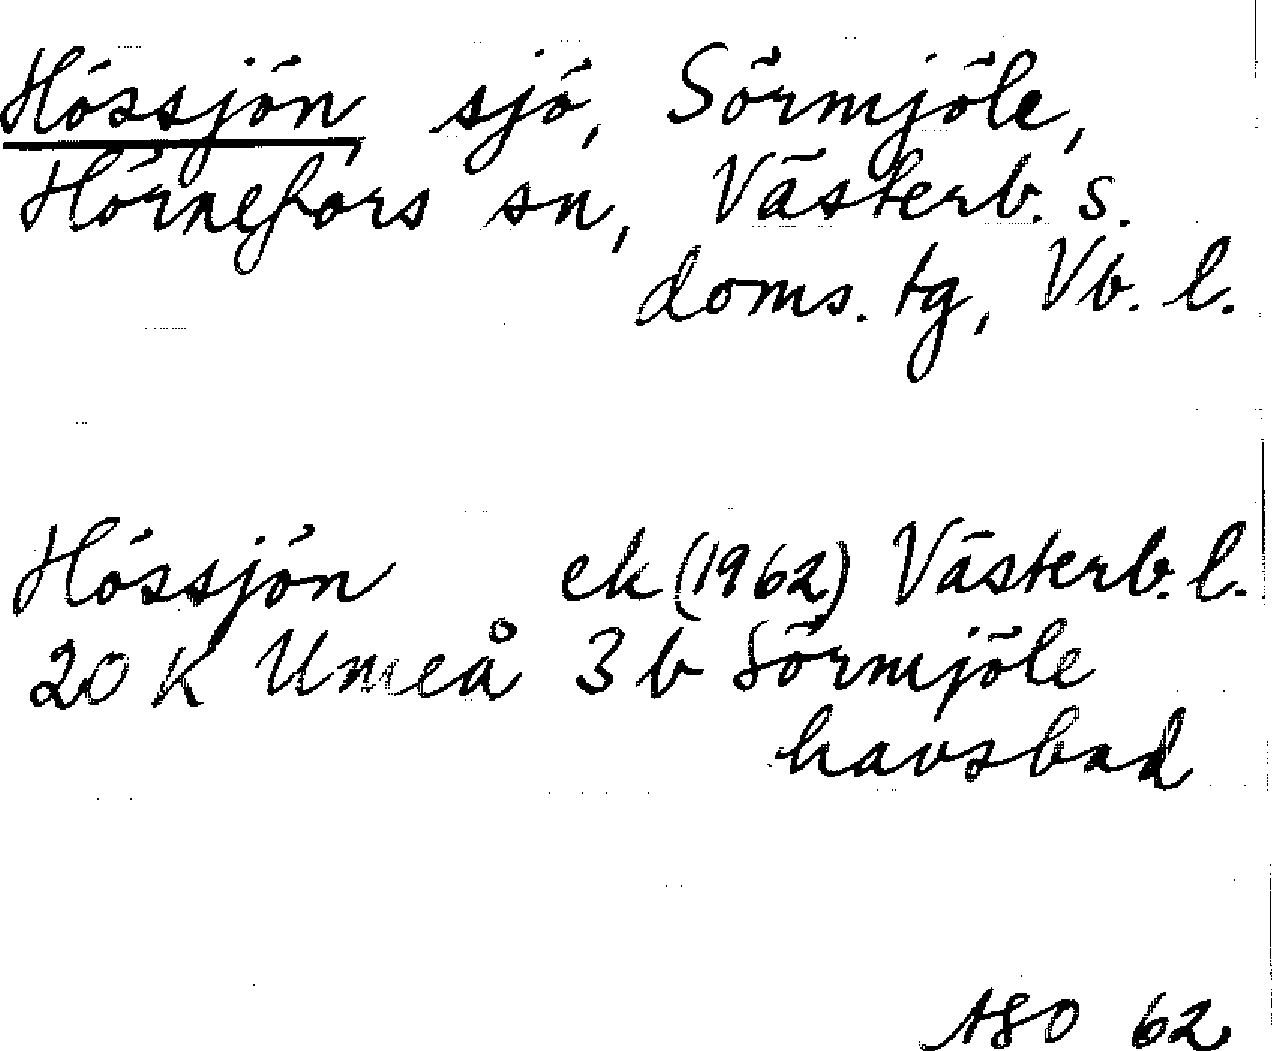 Hössjön sjö, Sörmjöle,
Hörnefors sn, Västerb. s.
doms. tg, Vb. l.
Hössjön ek (1962) Västerb. l.
20 K Umeå 3 b Sörmjöle
havsbad
ASO 62